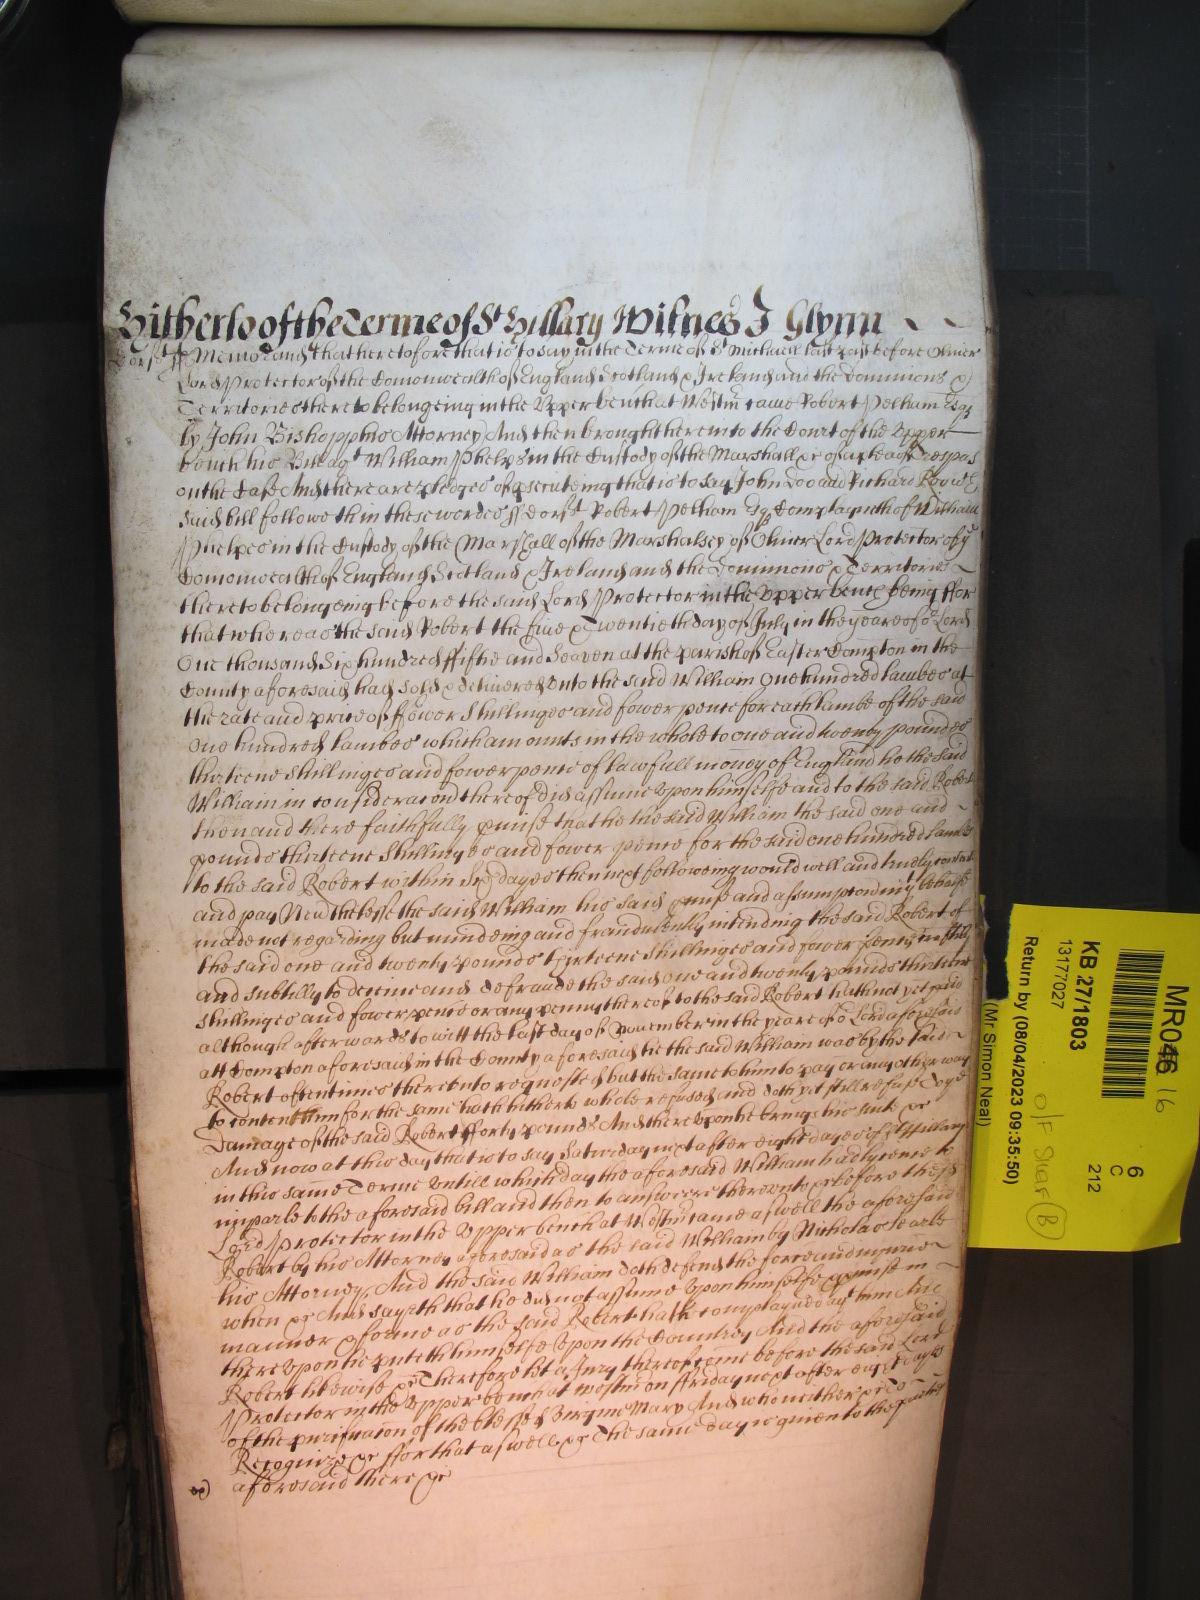 Hitherto of the Terme of St Hillary Witnes J Glynn
Dorst ss Memorand that heretofore that is to say in the Terme of St Michaell last past before Oliver
Lord Protector of the Comonwealth of England Scotland & Ireland and the Dominions &
Territories thereto belongeing in the Upper bench at Westm came Robert Pelham Esqr
by John Bishopp his Attorney And then brought here into the Court of the Upper
bench his Bill agt William Phelps in the Custody of the Marshall &c of a plea of Trespas
on the Case And there are pledges of psecuteing that is to say John Doo and Richard Roo wch
said bill followeth in these wordes ss Dorst Robert Pelham Esqr Complayneth of William
Phelpes in the Custody of the Marshall of the Marshalsey of Oliver Lord Protector of ye
Comonwealth of England Scotland & Ireland and the Dominions & Territories
thereto belongeing before the said Lord Protector in the Upper bench being ffor
that whereas the said Robert the five & Twentieth day of July in the yeare of or Lord
One thousand Six hundred ffiftie and Seaven at the parish of Easter Compton in the
County aforesaid had sold & delivered unto the said William One hundred lambes at
the rate and price of ffower Shillinges and fower pence for each lambe of the said
one hundred lambes which amounts in the whole to one and twenty poundes
thirteene shillinges and fower pence of lawfull money of England he the said
William in consideracon thereof did assume upon himselfe and to the said Robert
then and there faithfully pmise that he the said William the said one and
pounds thirteene Shillinges and fower pence for the said one hundred lambes
to the said Robert within Six dayes then next followeing would well and truely content
and pay Nevertheless the said William his said pmise and assumpcon in forme
made not regarding but mindeing and fraudulently intending the said Robert of
the said one and twenty pounds thirteene shillinges and fower pence craftily
and subtilly to deceive and defraude the said one and twenty pounds thirteene
shillinges and fower pence or any penny thereof to the said Robert hath not yet paid
although afterwards to witt the last day of November in the yeare of or Lord aforesaid
att Compton aforesaid in the County aforesaid he the said William was by the said
Robert oftentimes thereunto requested but the same to him to pay or any other way
to content him for the same hath hitherto wholie refused and doth yet still refuse To ye
Damage of the said Robert fforty pounds And thereupon he brings his suite &c
And now at this day that is to say Saturday next after eight dayes of St Hillary
in this same Terme untill which day the aforesaid William had lycence to
imparle to the aforesaid bill and then to answere thereunto &c before the sd
Lord Protector in the Upper bench at Westm came aswell the aforesaid
Robert by his Attorney aforesaid as the said William by Nicholas Searle
his Attorney And the said William doth defend the force and injurie
when &c And sayeth that he did not assume upon himselfe & pmise in
manner & forme as the said Robert hath complayned agt him And
thereupon he putteth himselfe upon the Countrey And the aforesaid
Robert likewise &c Therefore let a Jury thereof come before the said Lord
Protector in the Upper bench at Westm on ffriday next after eight dayes
of the purificacon of the blessed Virgine Mary And who neither &c To
Recognize &c ffor that aswell &c The same day is given to the parties
aforesaid there &c
MR046 16
KB 27/1803
13177027
Return by (08/04/2023 09:35:50)
(Mr Simon Neal)
6
C
212
O/F Star B